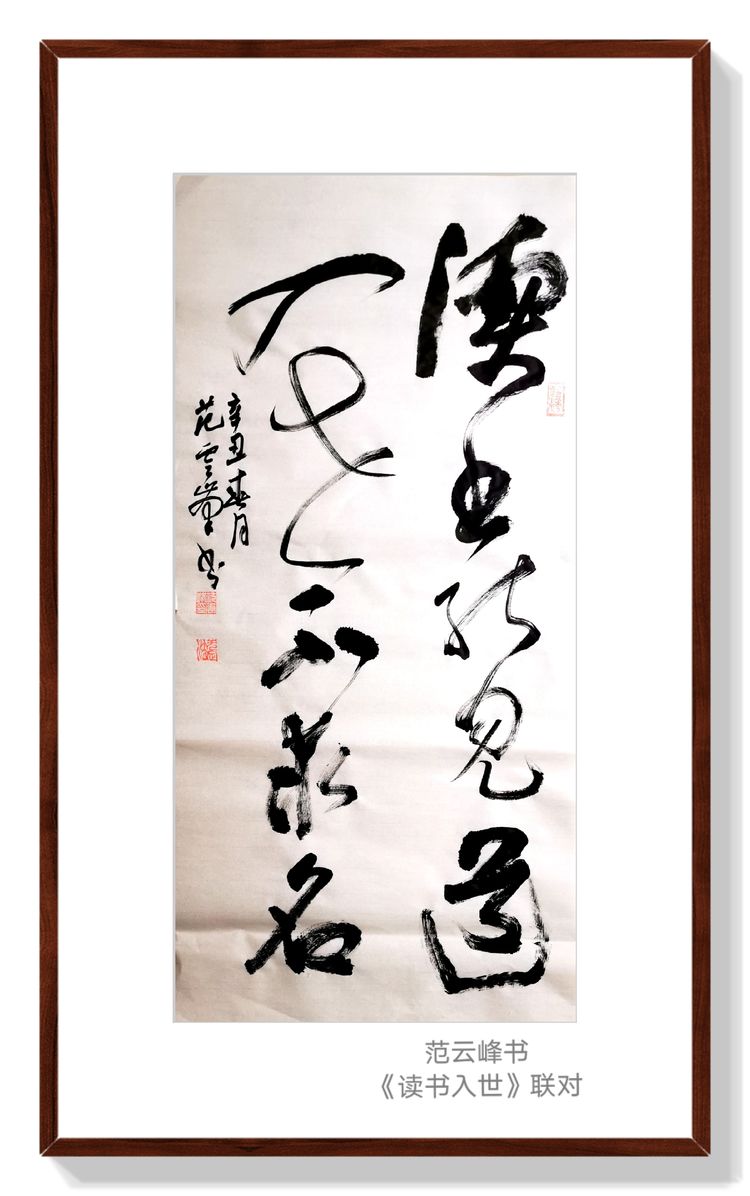 讀書能見道
入世不求名
辛丑春月
范雲峯書
范云峰书
《读书入世》联对